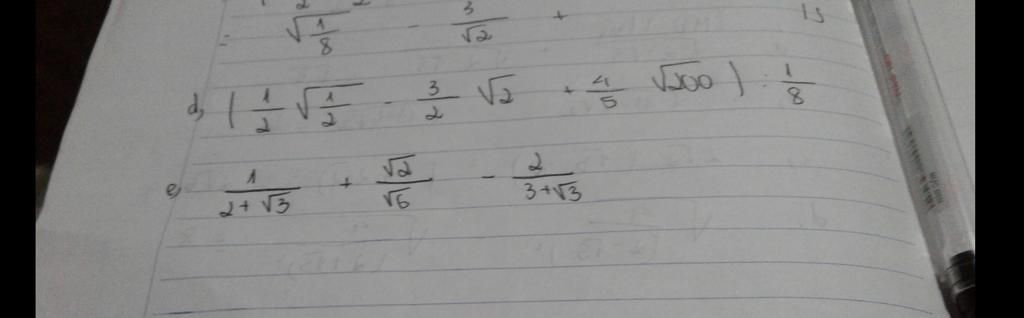 = √(1/8) - 3/√2 +
d, (1/2 √(1/2) - 3/2 √2 + 4/5 √200) : 1/8
e, 1/(2+√3) + √2/√6 - 2/(3+√3)